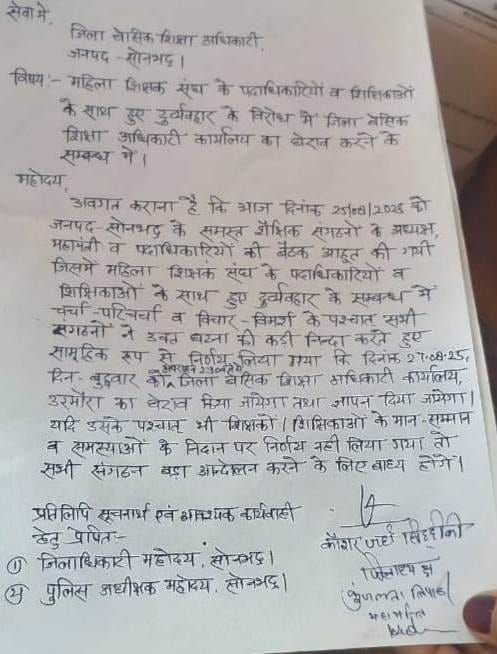 सेवा में,
जिला बेसिक शिक्षा अधिकारी,
जनपद - सोनभद्र।
विषय:- महिला शिक्षक संघ के पदाधिकारियों व शिक्षिकाओं
के साथ हुए दुर्व्यवहार के विरोध में जिला बेसिक
शिक्षा अधिकारी कार्यालय का घेराव करने के
सम्बन्ध में।
महोदय,
अवगत कराना है कि आज दिनांक 25/08/2025 को
जनपद-सोनभद्र के समस्त शैक्षिक संगठनों के अध्यक्ष,
महामंत्री व पदाधिकारियों की बैठक आहूत की गयी
जिसमें महिला शिक्षक संघ के पदाधिकारियों व
शिक्षिकाओं के साथ हुए दुर्व्यवहार के सम्बन्ध में
चर्चा-परिचर्चा व विचार-विमर्श के पश्चात सभी
संगठनों ने उक्त घटना की कड़ी निन्दा करते हुए
सामूहिक रूप से निर्णय लिया गया कि दिनांक 27-08-25,
दिन- बुद्धवार को जिला बेसिक शिक्षा अधिकारी कार्यालय,
उरमौरा का घेराव किया जायेगा तथा ज्ञापन दिया जायेगा।
यदि उसके पश्चात भी शिक्षकों/शिक्षिकाओं के मान-सम्मान
व समस्याओं के निदान पर निर्णय नहीं लिया गया तो
सभी संगठन बड़ा आन्दोलन करने के लिए बाध्य होंगे।
प्रतिलिपि सूचनार्थ एवं आवश्यक कार्यवाही
हेतु प्रेषित:-
(1) जिलाधिकारी महोदय, सोनभद्र।
(2) पुलिस अधीक्षक महोदय, सोनभद्र।
कौशर जहाँ सिद्दीकी
जिलाध्यक्ष